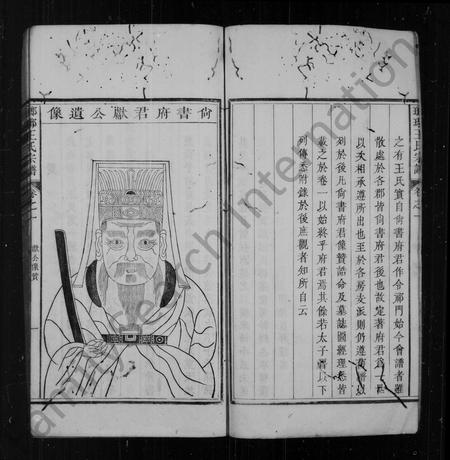 之有王氏實自尚書府君作令祁門始今會譜者雖
散處於各郡皆尚書府君後也故定著府君爲
以夫相承遵所出也至於各房支派則仍遵
列於後凡尚書府君像贊誥命及墓誌圖經理悉皆
載之於卷一以始將乎府君焉其餘若太子晉以下
列傳悉附錄於後庶觀者知所自云
瑯琊王氏宗譜
卷之一
尚書府君獻公遺像
瑯琊王氏宗譜
卷之一
獻公像贊
一